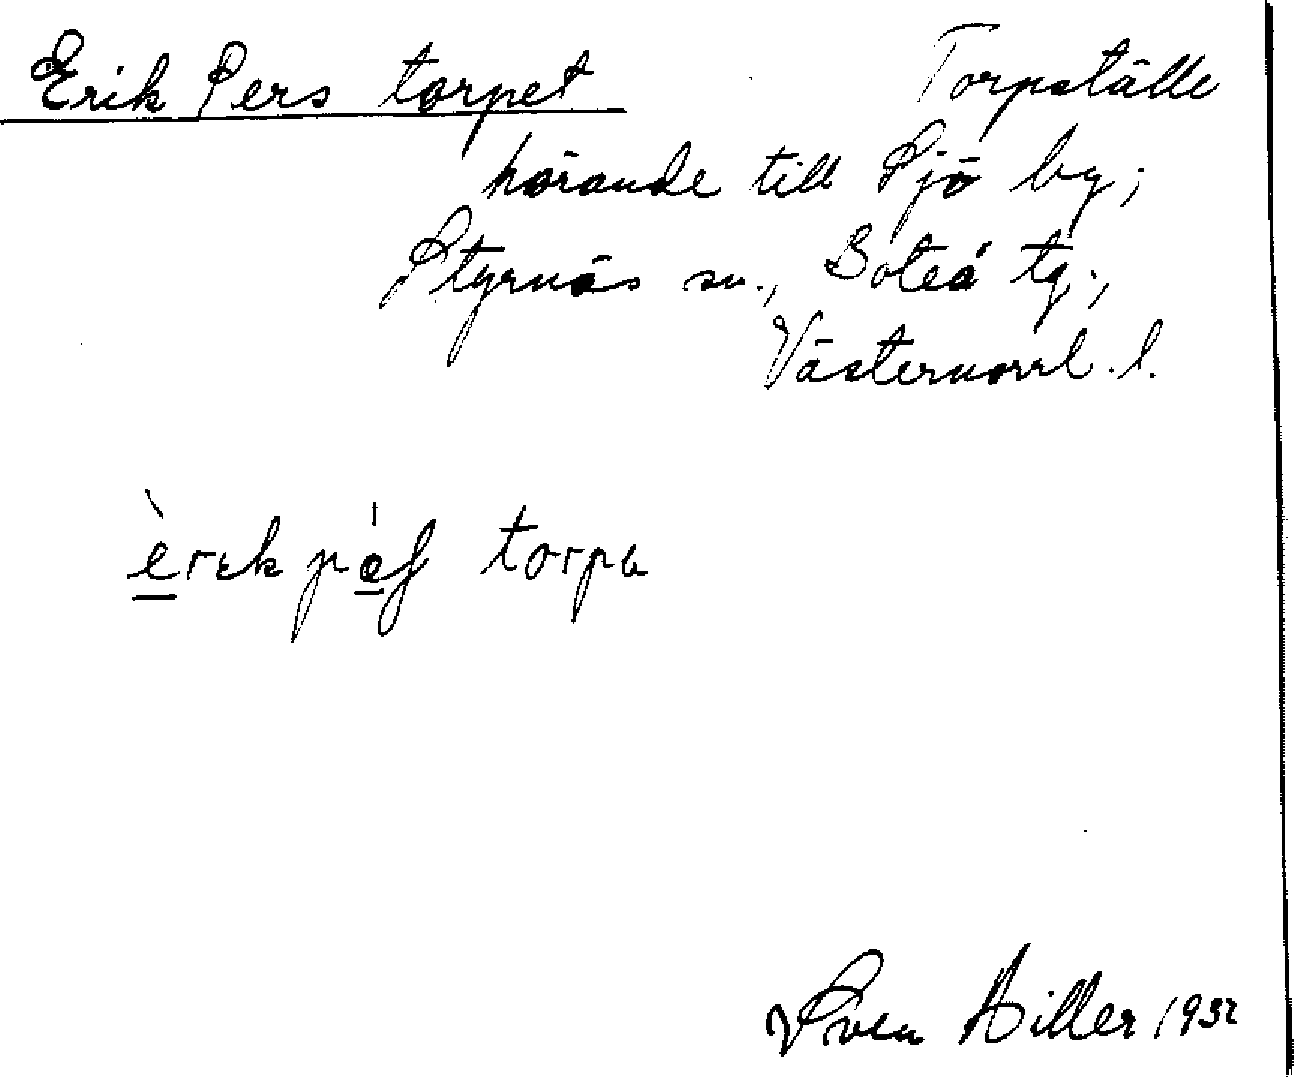 Erik Pers torpet Torpställe
hörande till Sjö by;
Styrnäs sn., Boteå tg.,
Västernorrl. l.
torpa
Sven Hiller 1932